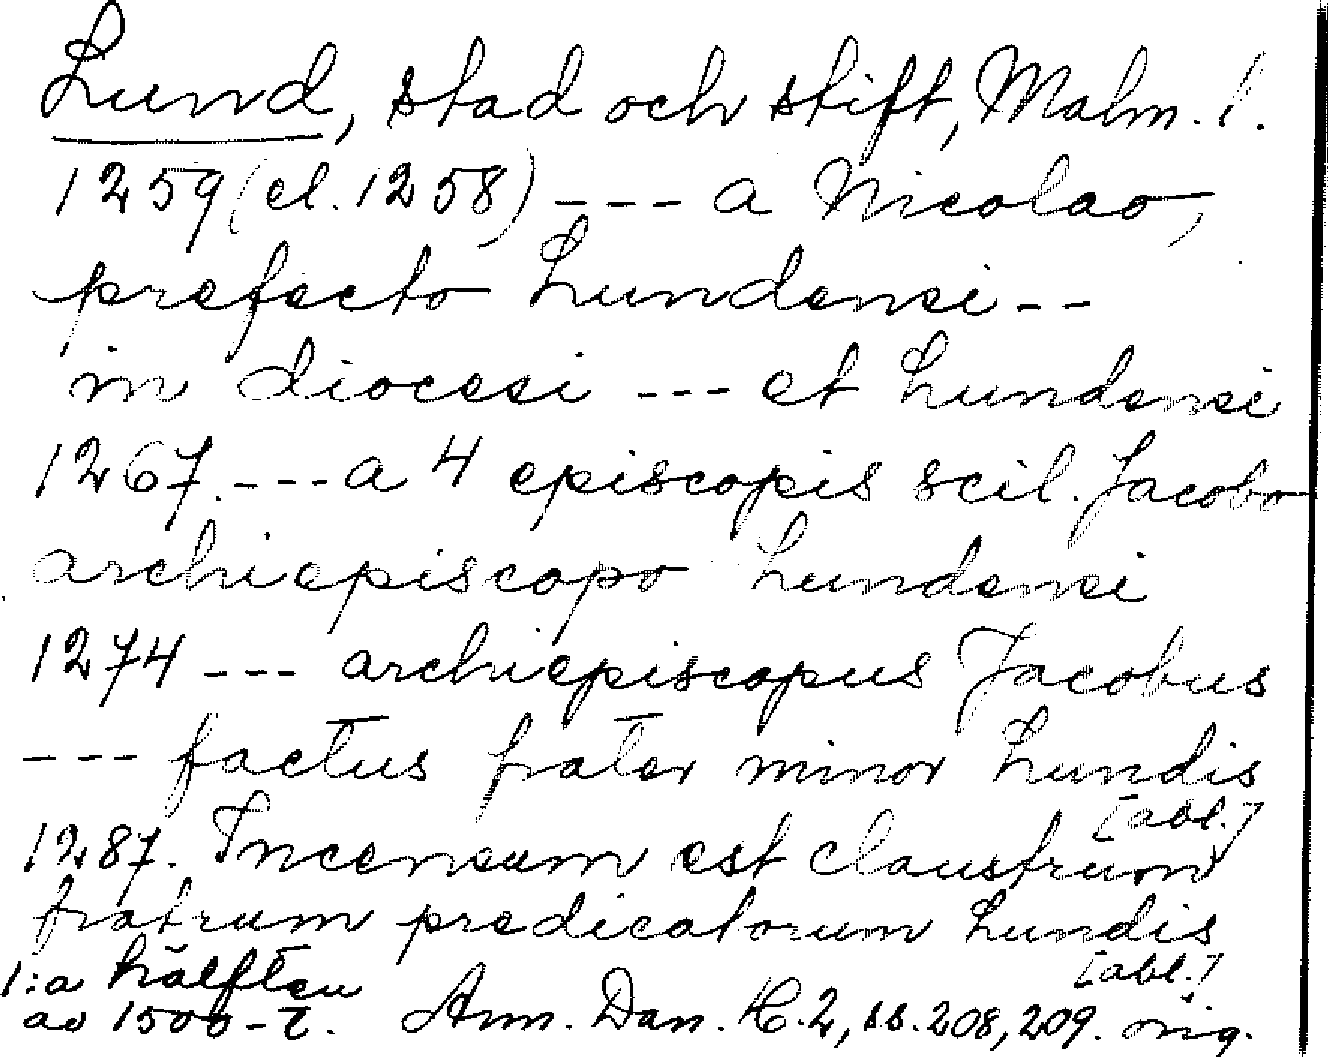 Lund, stad och stift, Malm. l.
1259 (el. 1258) --- a Nicolao,
prefecto Lundensi --
in diocesi --- et Lundensi
1267. --- a 4 episcopis scil. Jacobo
archiepiscopo Lundensi
1274 --- archiepiscopus Jacobus
--- factus frater minor Lundis
[abl.]
1287. Incensum est claustrum
fratrum predicatorum Lundis
[abl.]
1:a hälften
av 1500-t. Ann. Dan. H. 2, ss. 208, 209. orig.